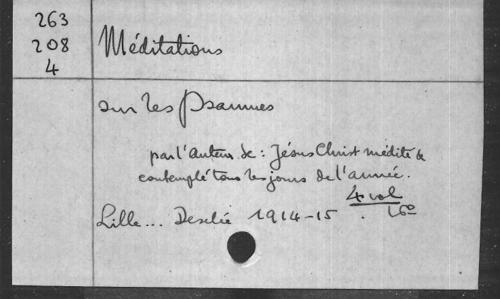 263
208
4
Méditations
sur les Psaumes
par l'Auteur de : Jésus Christ médité &
contemplé tous les jours de l'année.
4 vol
Lille... Desclée 1914-15. 16º